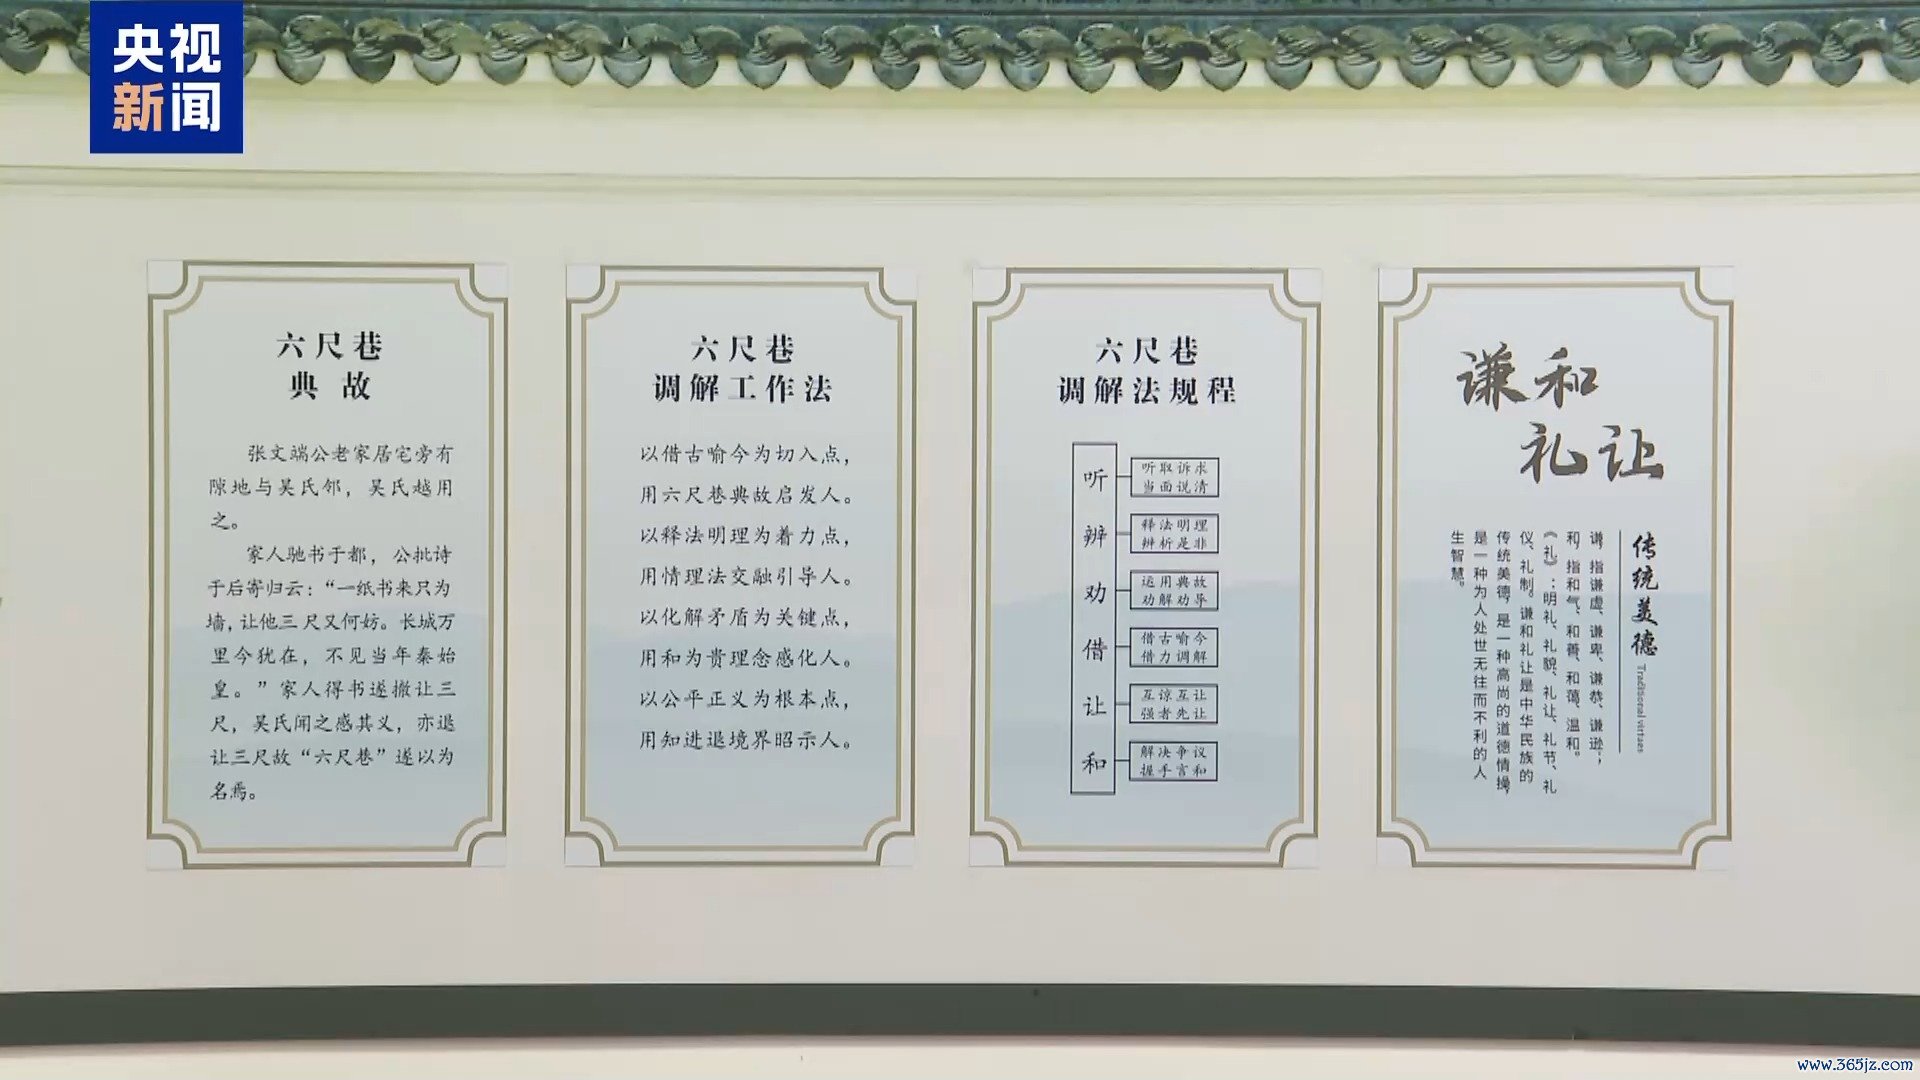 央视
新闻
六尺巷
典故
张文端公老家居宅旁有
隙地与吴氏邻，吴氏越用
之。
家人驰书于都，公批诗
于后寄归云：“一纸书来只为
墙，让他三尺又何妨。长城万
里今犹在，不见当年秦始
皇。”家人得书遂撤让三
尺，吴氏闻之感其义，亦退
让三尺故“六尺巷”遂以为
名焉。
六尺巷
调解工作法
以借古喻今为切入点，
用六尺巷典故启发人。
以释法明理为着力点，
用情理法交融引导人。
以化解矛盾为关键点，
用和为贵理念感化人。
以公平正义为根本点，
用知进退境界昭示人。
六尺巷
调解法规程
听
听取诉求
当面说清
辨
释法明理
辨析是非
劝
运用典故
劝解劝导
借
借古喻今
借力调解
让
互谅互让
强者先让
和
解决争议
握手言和
谦和
礼让
传统美德
Traditional virtues
谦，指谦虚、谦卑、谦恭、谦逊；
和，指和气、和善、和蔼、温和。
《礼》：明礼、礼貌、礼让、礼节、礼
仪、礼制。谦和礼让是中华民族的
传统美德，是一种高尚的道德情操，
是一种为人处世无往而不利的人
生智慧。
www.365jz.com